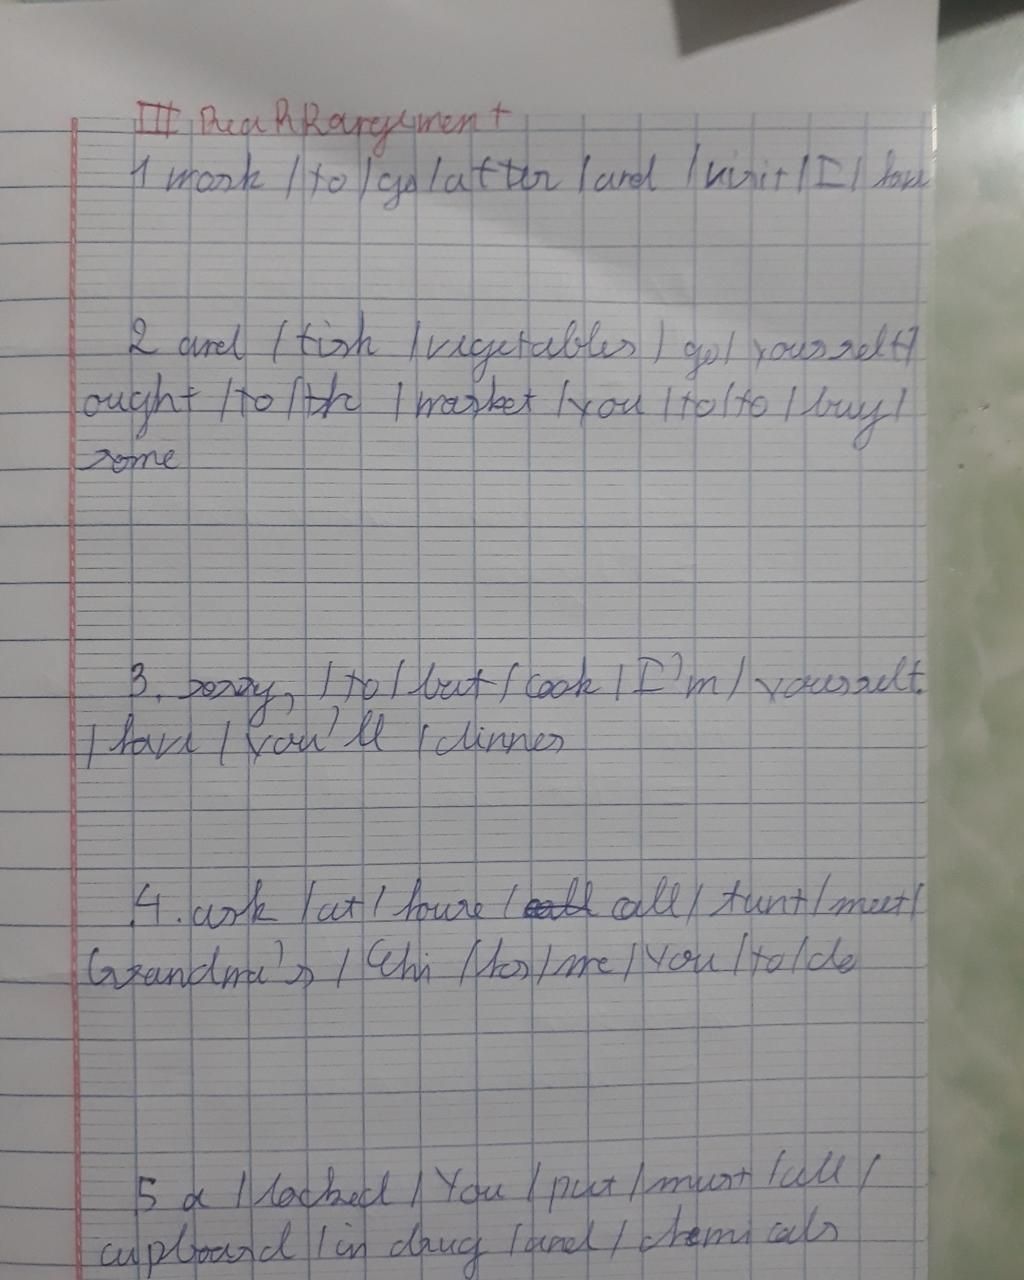 III ReaRRangement
1 work / to / go / after / and / visit / I / have
2 and / fish / vegetables / go / yourself /
ought / to / th / market / you / to / to / buy /
some
3. sorry, / to / but / cook / I'm / yourself
/ have / you'll / dinner
4. ask / at / house / call / Aunt / meet /
Grandma's / Chi / her / me / You / to /
5 a / locked / You / put / must / all /
cupboard / in drug / and / chemicals